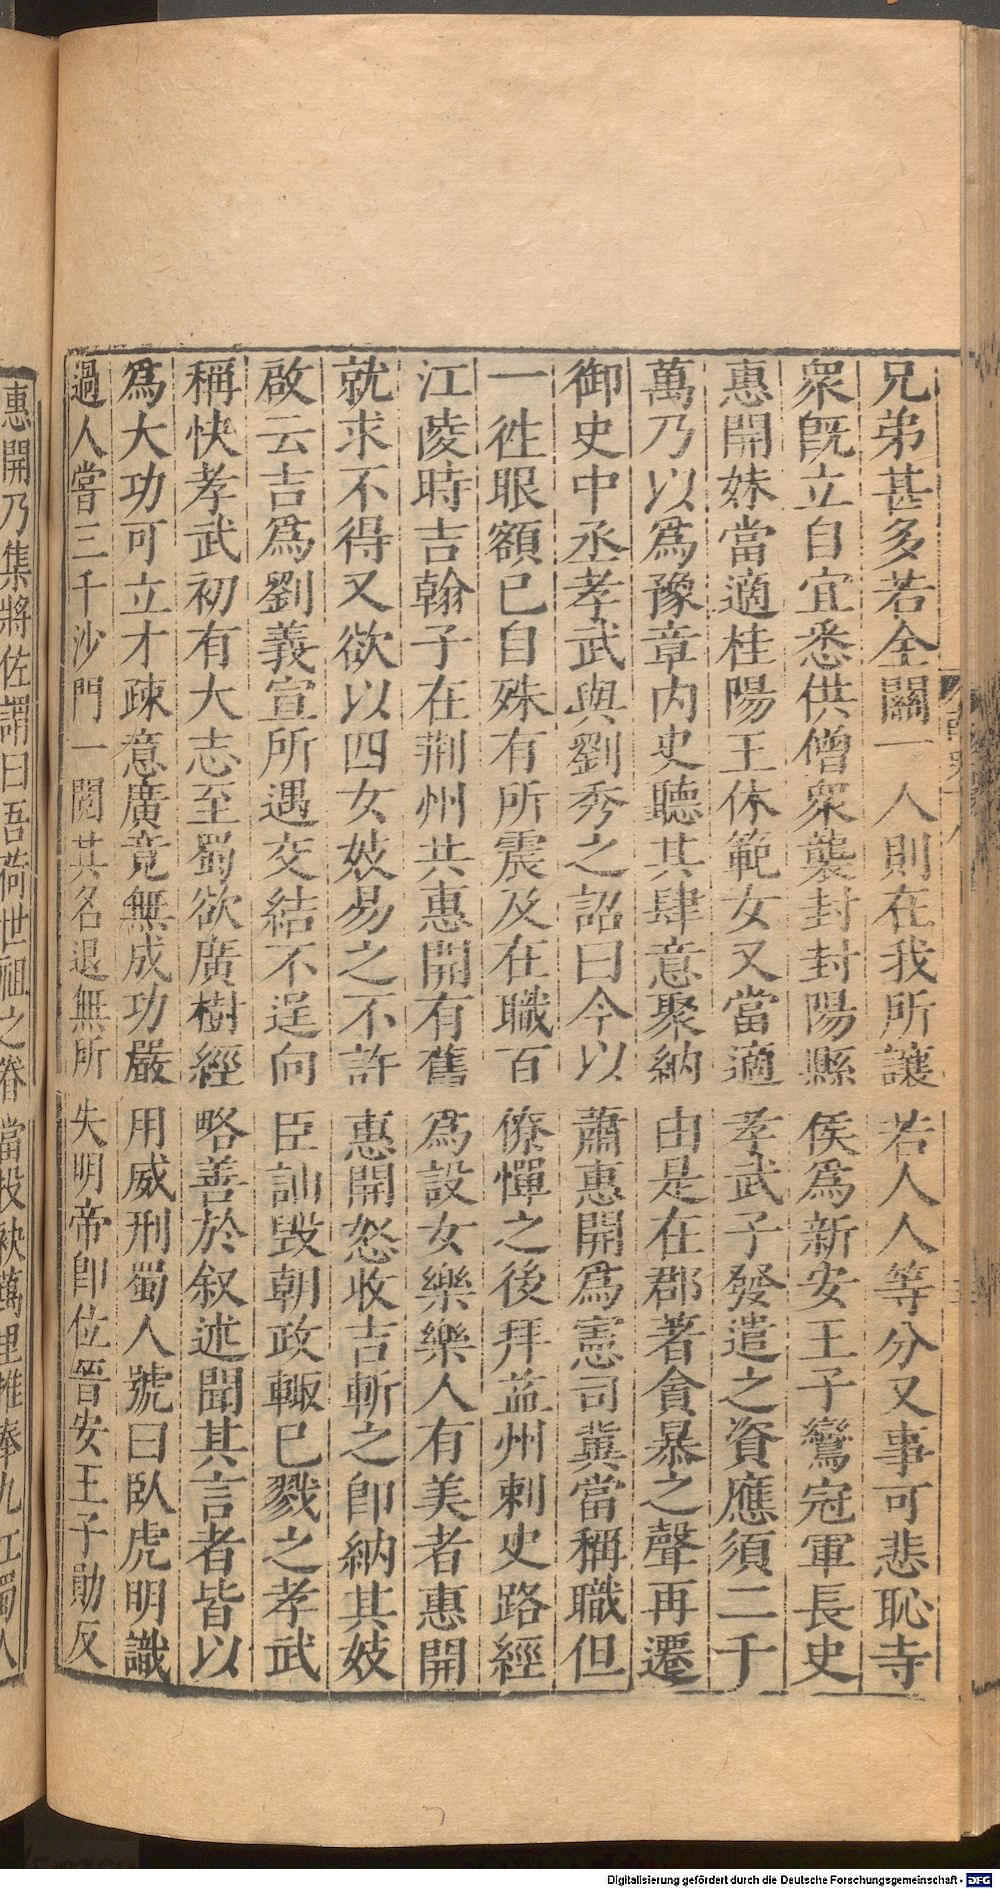 兄弟甚多若全關一人則在我所讓若人人等分又事可悲恥寺
衆旣立自宜悉供僧衆襲封封陽縣侯爲新安王子鸞冠軍長史
惠開妹當適桂陽王休範女又當適孝武子發遣之資應須二千
萬乃以爲豫章内史聽其肆意聚納由是在郡著貪暴之聲再遷
御史中丞孝武與劉秀之詔曰今以蕭惠開爲憲司冀當稱職但
一徃眼額已自殊有所震及在職百僚憚之後拜益州刺史路經
江陵時吉翰子在荆州共惠開有舊爲設女樂樂人有美者惠開
就求不得又欲以四女妓易之不許惠開怒收吉斬之卽納其妓
啟云吉爲劉義宣所遇交結不逞向臣訕毁朝政輙已戮之孝武
稱快孝武初有大志至蜀欲廣樹經略善於叙述聞其言者皆以
爲大功可立才疎意廣竟無成功嚴用威刑蜀人號曰臥虎明識
過人嘗三千沙門一閱其名退無所失明帝卽位晉安王子勛反
惠開乃集將佐謂曰吾荷世祖之眷當投袂萬里推奉九江蜀人
Digitalisierung gefördert durch die Deutsche Forschungsgemeinschaft - DFG